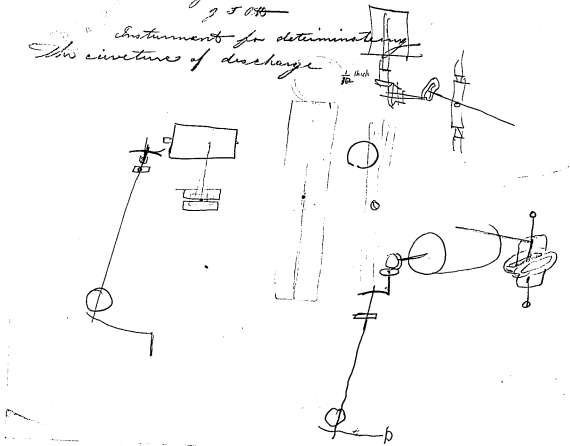 Insturment for determinateing
The curveture of discharge
1/32 thick